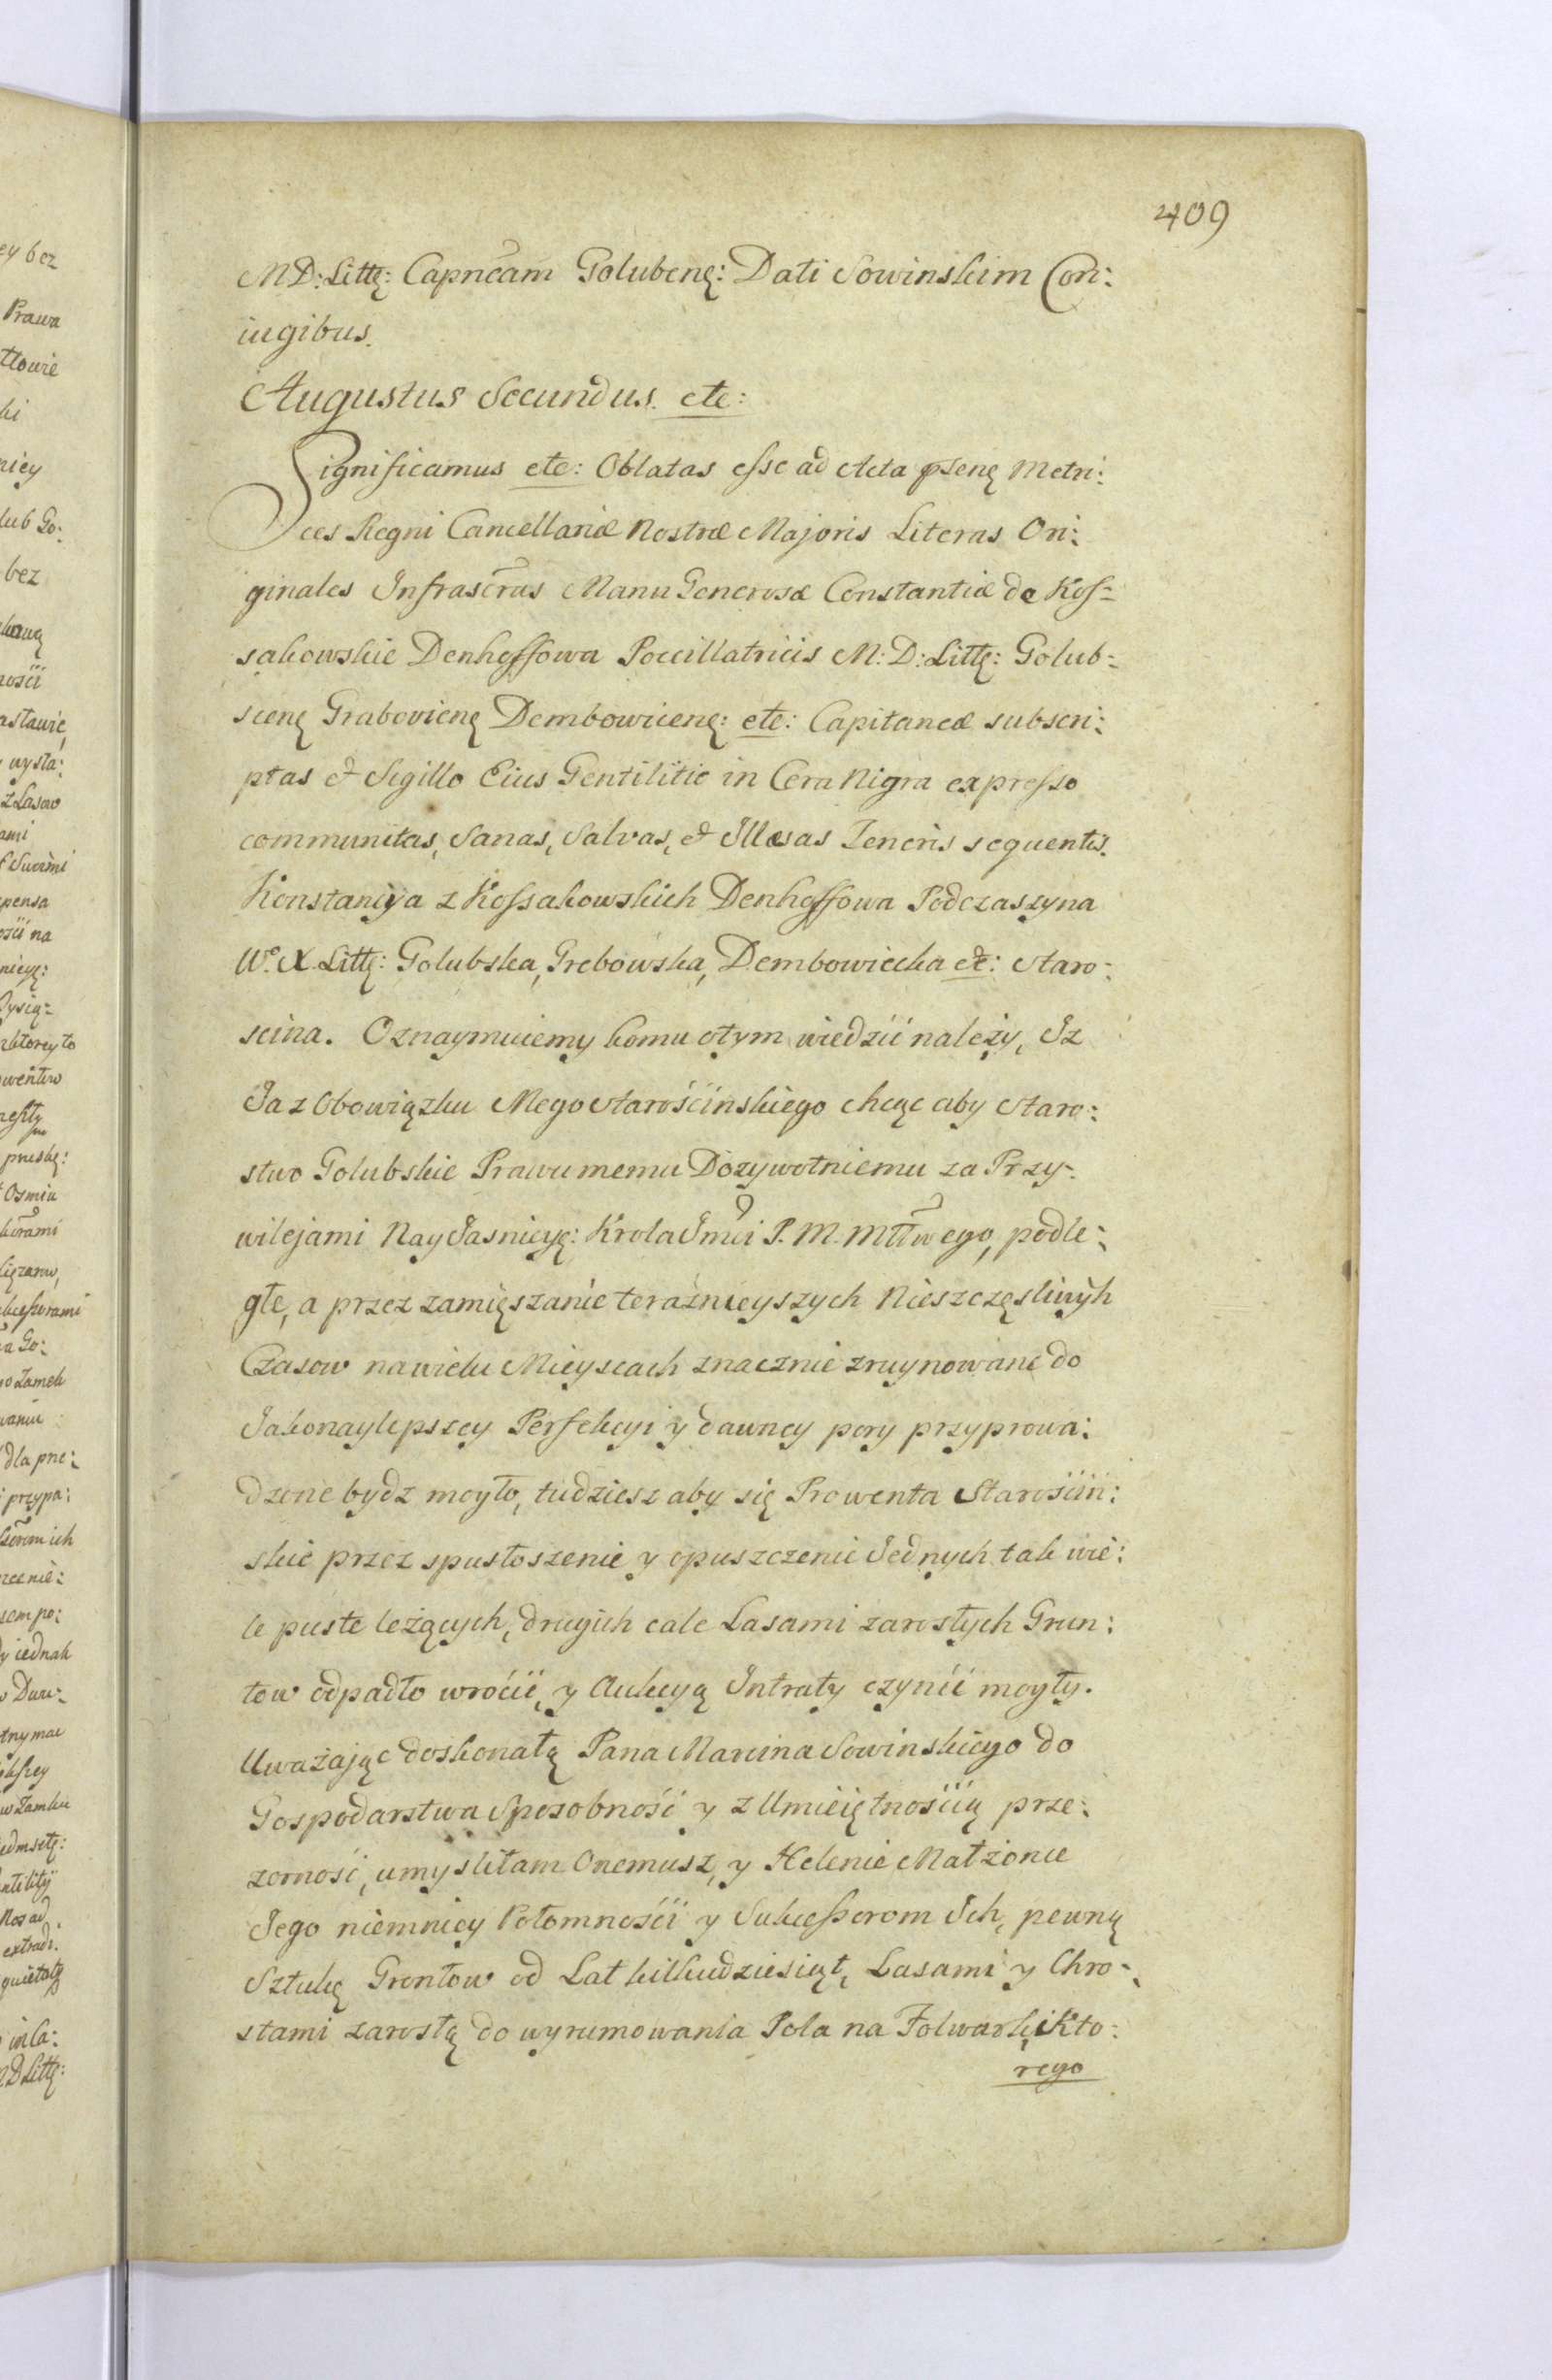 409
MD: Littę: Capnēam Golubenę: Dati Sowinskim Con:
iugibus.
Augustus Secundus. etc:
Significamus etc: Oblatas esse ad Acta pſenę Metri:
ces Regni Cancellariæ Nostræ Majoris Literas Ori:
ginales Infrascr̄as Manu Generosæ Constantiæ de Kos=
sakowskie Denhoffowa Poccillatricis M: D: Littę: Golub=
scenę Grabovienę Dembowicenę: etc: Capitaneæ subscri:
ptas et Sigillo Eius Gentilitio in Cera Nigra expresso
communitas, Sanas, Salvas, et Illæsas Tenoris sequentis.
Konstancÿa z Kossakowskich Denhoffowa Podczaszyna
W.º X. Littę: Golubska, Grebowska, Dembowiecka etc: Staro:
scina. Oznaymuiemy komu otym wiedzić należy, Iz
Ia z Obowiązku Mego Starościńskiego chcąc aby Staro:
stwo Golubskie Prawu memu Dozywotniemu za Przy=
wilejami Nay Jasnieyę: Krola Jmći P. M. Młłwego, podle:
głe, a przez zamięszanie teraźnieyszych Nieszczęsliwÿh
Czasow na wielu Mieyscach znacznie zruynowane do
Iakonaylepszey Perfekcyi y dawney pory przyprowa:
dzone bydz mogło, tudziesz aby się Prowenta Starośćin:
skie przez spustoszenie y opuszczenie Jednych tak wie:
le puste leżących, drugich cale Lasami zarosłych Grun:
tow odpadło wroćić, y Aukcyą Intraty czynić mogły.
Uważając doskonałą Pana Marcina Sowinskiego do
Gospodarstwa Sposobność y z Umieiętnośćią prze:
zorność, umysliłam Onemusz, y Helenie Małżonce
Jego niemniey Potomnośći y Sukcessorom Ich, pewną
Sztukę Grontow od Lat kilkudziesiąt, Lasami y Chro=
stami zarosłą do wyrumowania Pola na Folwark, Kto:
rego